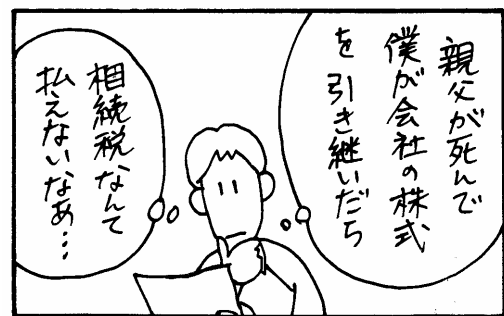 親父が死んで
僕が会社の株式
を引き継いだら
相続税なんて
払えないなぁ…